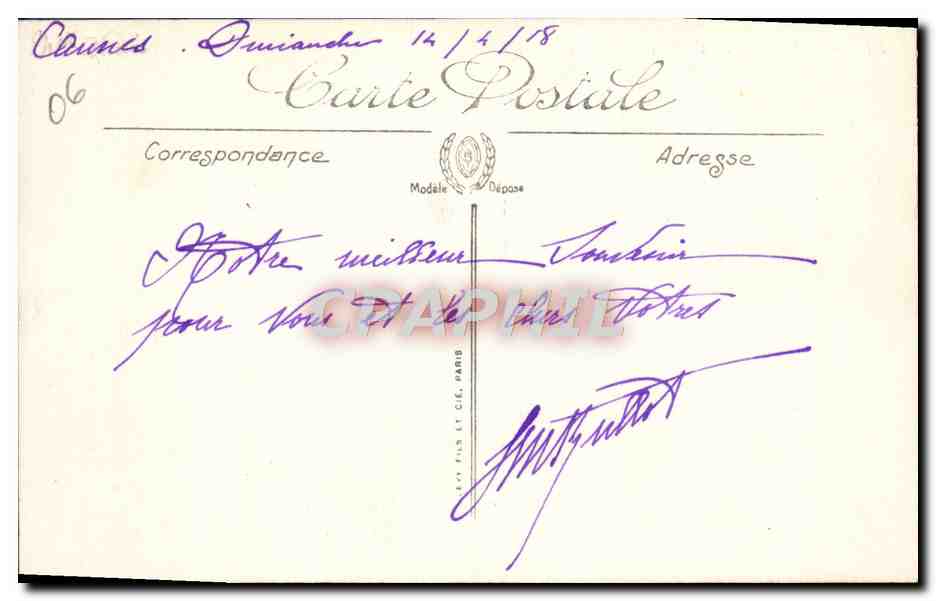 Cannes. Dimanche 14/4/18
06
Carte Postale
Correspondance
Adresse
Modèle Déposé
Notre meilleur Souvenir
pour Vous et les chers Vôtres
CPAPHIL
LEVY FILS ET CIE, PARIS